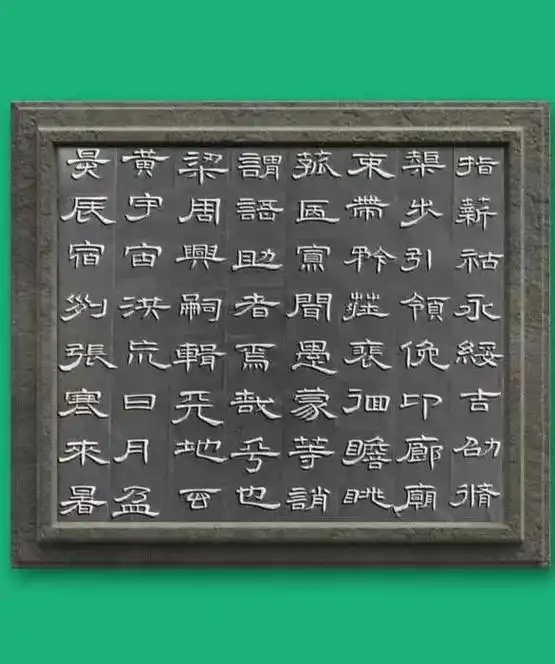 指薪祜永綏吉劭脩
榘步引領俛卬廊廟
束帶矜莊裵徊瞻眺
寡聞愚蒙等誚
謂語助者焉哉乎也
梁周興嗣輯天地玄
黃宇宙洪荒日月盈
昃辰宿列張寒來暑